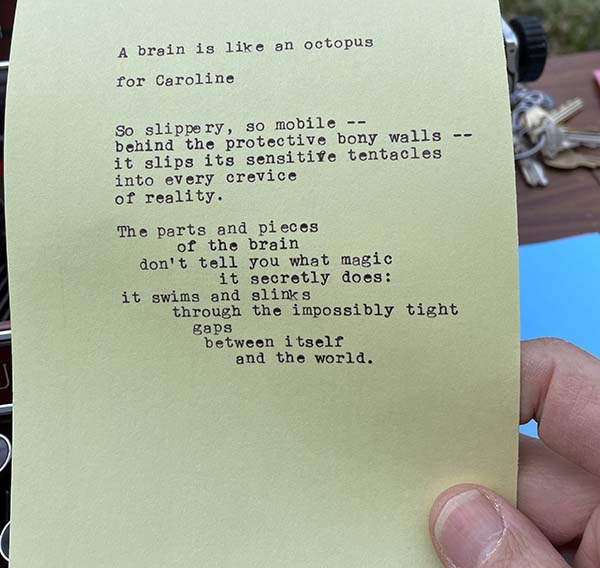 A brain is like an octopus
for Caroline
So slippery, so mobile --
behind the protective bony walls --
it slips its sensitive tentacles
into every crevice
of reality.
The parts and pieces
of the brain
don't tell you what magic
it secretly does:
it swims and slinks
through the impossibly tight
gaps
between itself
and the world.